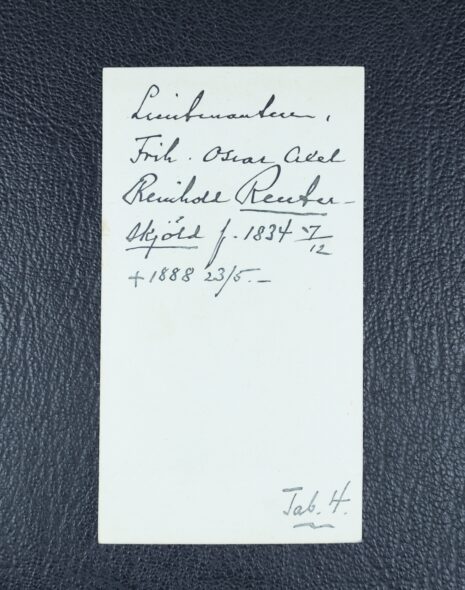 Lieutenanten,
Frih. Oscar Axel
Reinhold Reuter-
skjöld f. 1834 7/12
+ 1888 23/5. –
Tab. 4.